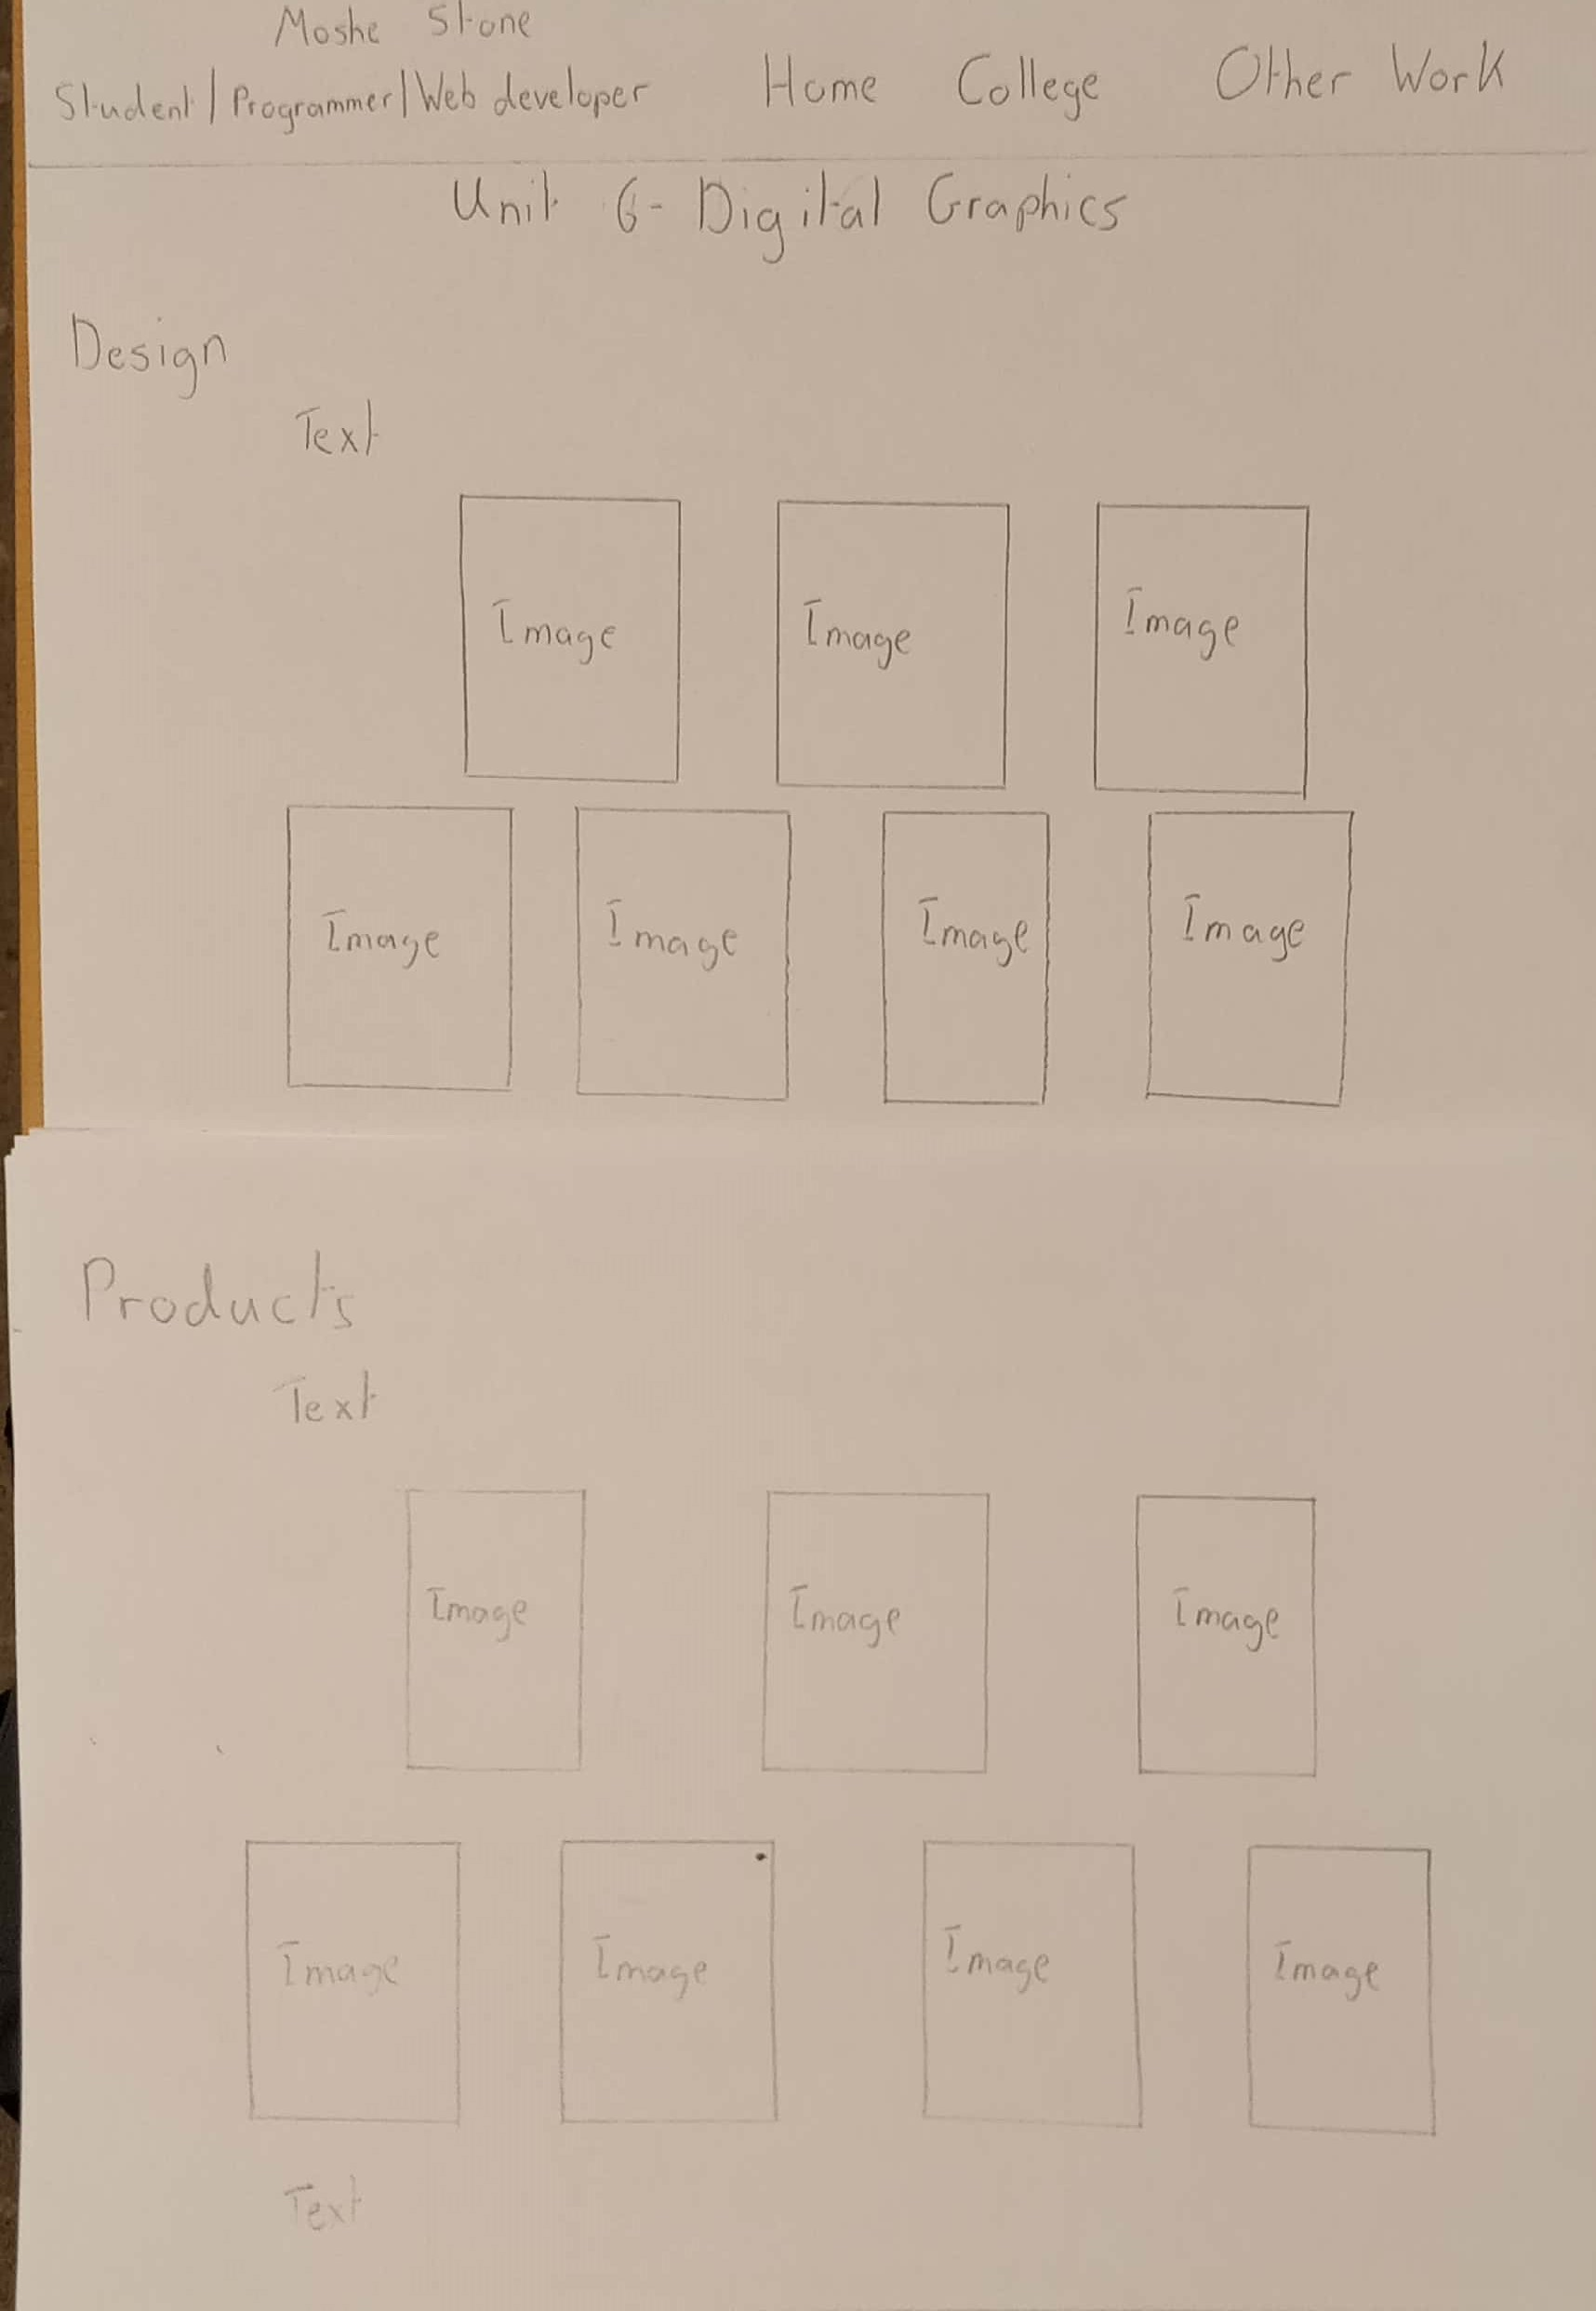 Moshe Stone
Student/Programmer/Web developer Home College Other Work
Unit 6- Digital Graphics
Design
Text
Image Image Image
Image Image Image Image
Products
Text
Image Image Image
Image Image Image Image
Text